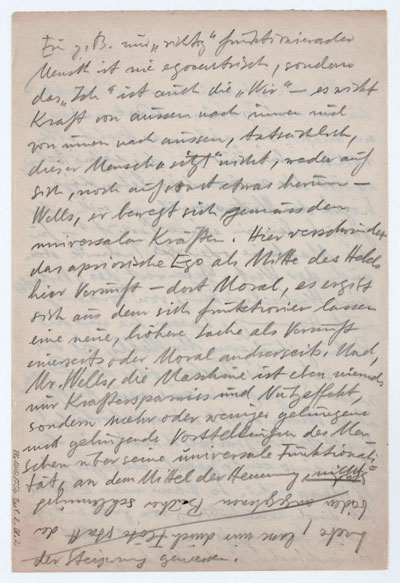 Ein z. B. nur „richtig" funktionierender
Mensch ist nie egozentrisch, sondern
das „Ich" ist auch die „Wir" – es wirkt
Kraft von aussen nach innen und
von innen nach aussen, tatsächlich,
dieser Mensch „sitzt" nicht, weder auf
sich, noch auf sonst etwas herum –
Wells, er bewegt sich gemäss den
universalen Kräften. Hier verschwindet
das apriorische Ego als Mitte des
hier Vernunft – dort Moral, es ergibt
sich aus dem sich funktionieren lassen
eine neue, höhere Sache als Vernunft
einerseits oder Moral andrerseits. Und,
Mr. Wells, die Maschine ist eben niemals
nur Kraftersparnis und Nutzeffekt,
sondern mehr oder weniger gelungene
und gelingende Vorstellungen des Men-
schen über seine universale Funktionali-
tät, an dem Mittel der Hemmung
der Steigerung gewesen.